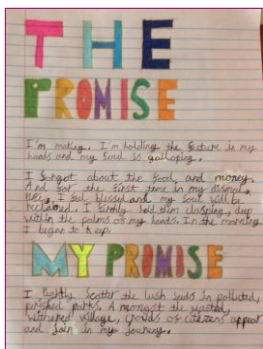 THE
PROMISE
I'm making. I'm holding the future in my
hands and my soul is galloping.
I forgot about the food, and money.
And for the first time in my dismal
life, I feel blessed and my soul will be
reclaimed. I firmly hold them clasping, deep
within the palms of my hands. In the morning
I began to keep
MY PROMISE
I lightly scatter the lush seeds in polluted,
parks. A mongst the wasted,
withered village, crowds of citizens appear
and join in my journey.